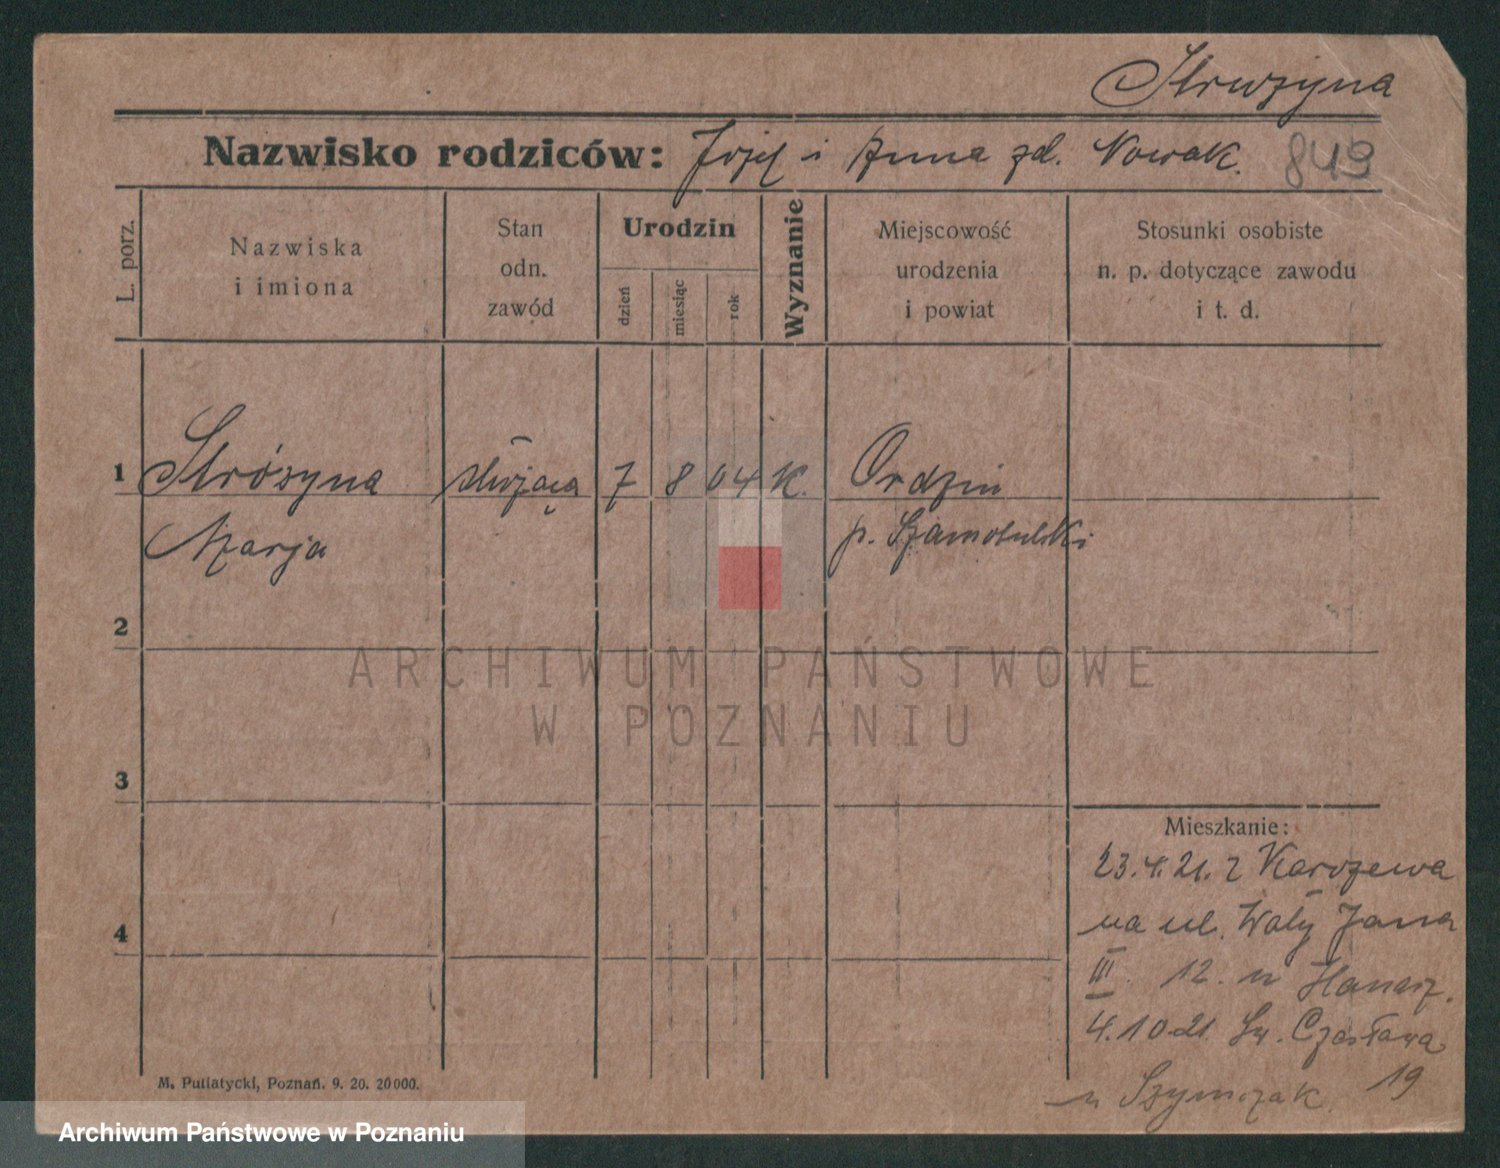 Strużyna
Nazwisko rodziców: Józef i Anna zd. Nowak. 849
L. porz.
Nazwiska
i imiona
Stan
odn.
zawód
Urodzin
dzień
miesiąc
rok
Wyznanie
Miejscowość
urodzenia
i powiat
Stosunki osobiste
n. p. dotyczące zawodu
i t. d.
1 Strózyna służąca 7 8 04 K. Ordzin
Marja p. Szamotulski
2
3
4
Mieszkanie:
23.4.21. z Karczewa
na ul. Wały Jana
III. 12. u
4.10.21. Św. Czesława
u Szymczak 19
M. Putiatycki, Poznań. 9. 20. 20000.
ARCHIWUM PAŃSTWOWE
W POZNANIU
Archiwum Państwowe w Poznaniu